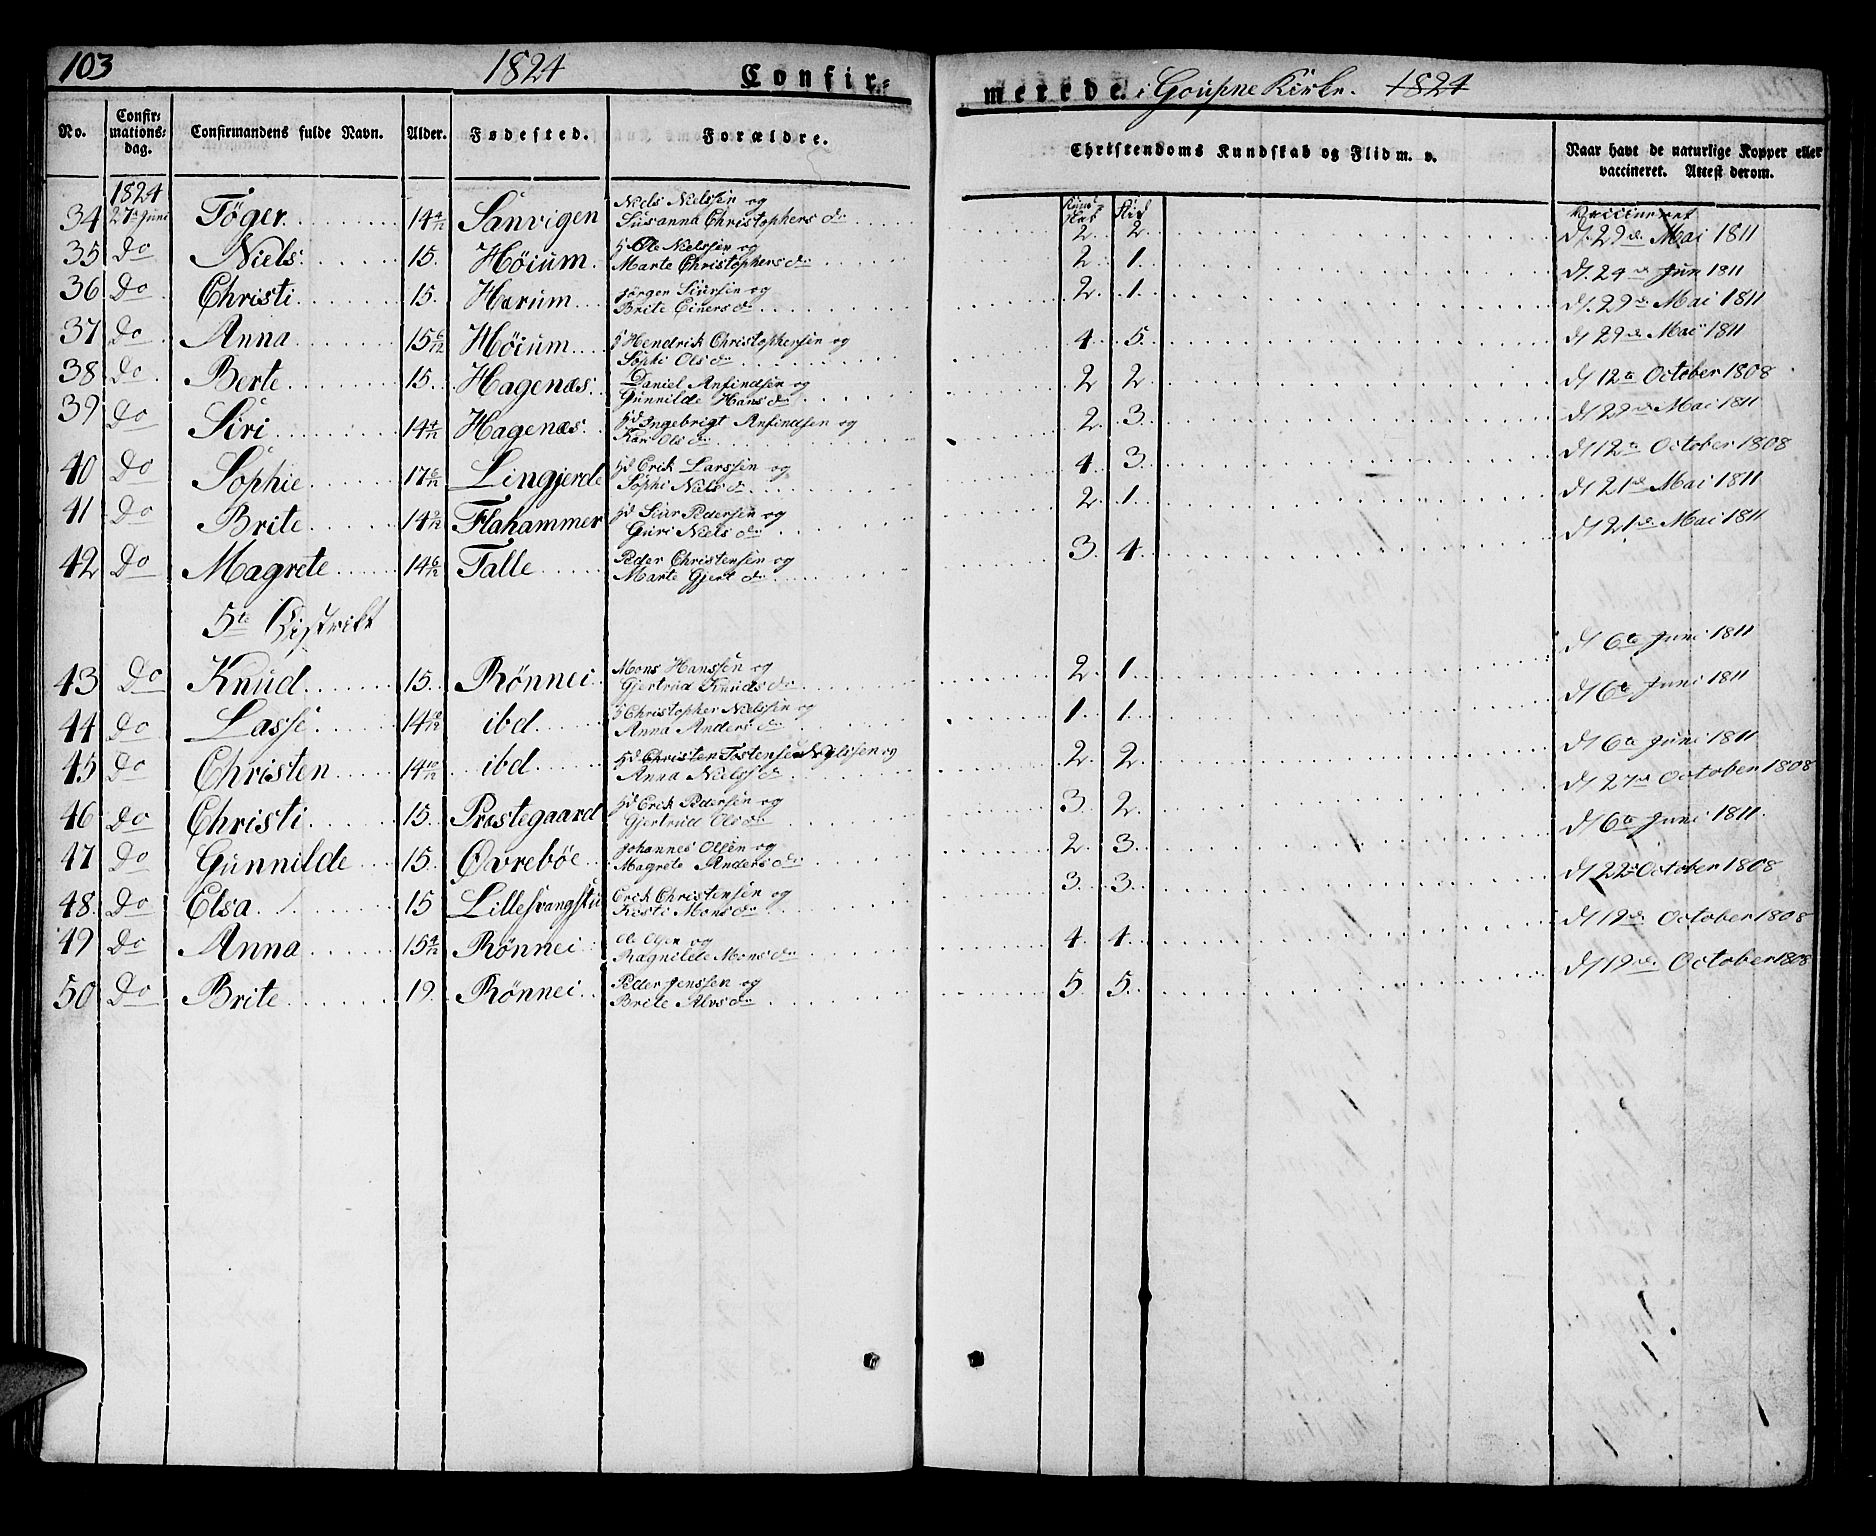 103 1824 Confir-
merede. i Goupne Kirke. 1824
No. Confir-mations-dag. Confirmandens fulde Navn. Alder. Fødested. Forældre. Christendoms Kundskab og Flid m. v. Naar havt de naturlige Kopper eller vaccineret. Attest derom.
1824 Niels Nielssen og Kund-skab Flid Vaccineret
34 27de Juni Töger 14 4/12 Sanvigen Susanna Christophers dr 2 2 d. 29de Mai 1811
35 Do Niels 15 Høium Ole Nielssen og Marte Christophers dr 2 1 d. 24de Jun 1811
36 Do Christi 15 Hærum Jørgen Siursen og Brite Einers dr 2 1 d. 29de Mai 1811
37 Do Anna 15 6/12 Høium Hendrik Christophersen og Sophi Ols dr 4 5 d 29de Mai 1811
38 Do Berte 15 Hagenæs Daniel Anfindsen og Gunnilde Hans dr 2 2 d 12te October 1808
39 Do Siri 14 4/12 Hagenæs Ingebrigt Anfindsen og Kari Ols dr 2 3 d 29de Mai 1811
40 Do Sophie 17 6/12 Lingjerde Erik Larssen og Sophi Niels dr 4 3 d 12te October 1808
41 Do Brite 14 9/12 Flahammer Siur Pedersen og Guri Niels dr 2 1 d 21de Mai 1811
42 Do Magrete 14 6/12 Talle Peder Christensen og Marte Gjert dr 3 4 d 21de Mai 1811
5te Distrikt
43 Do Knud 15 Rönnei Mons Hanssen og Gjertrud Knuds dr 2 1 d 6te Juni 1811
44 Do Lasse 14 10/12 ibd Christopher Nielssen og Anna Anders dr 1 1 d 6te Juni 1811
45 Do Christen 14 10/12 ibd Christen Tostensen og Anna Niels dr 2 2 d 6te Juni 1811
46 Do Christi 15 Præstegaard Erik Pedersen og Gjertrud Ols dr 3 2 d 27de October 1808
47 Do Gunnilde 15 Øvrebøe Johannes Olsen og Magrete Anders dr 2 3 d 6te Juni 1811
48 Do Elsa 15 Lillesvangstu Erik Christensen og Kristi Mons dr 3 3 d 22de October 1808
49 Do Anna 15 4/12 Rönnei Ole Olsen og Ragnilde Mons dr 4 4 d 19de October 1808
50 Do Brite 19 Rönnei Peder Jenssen og Brite Alvs dr 5 5 d 19de October 1808